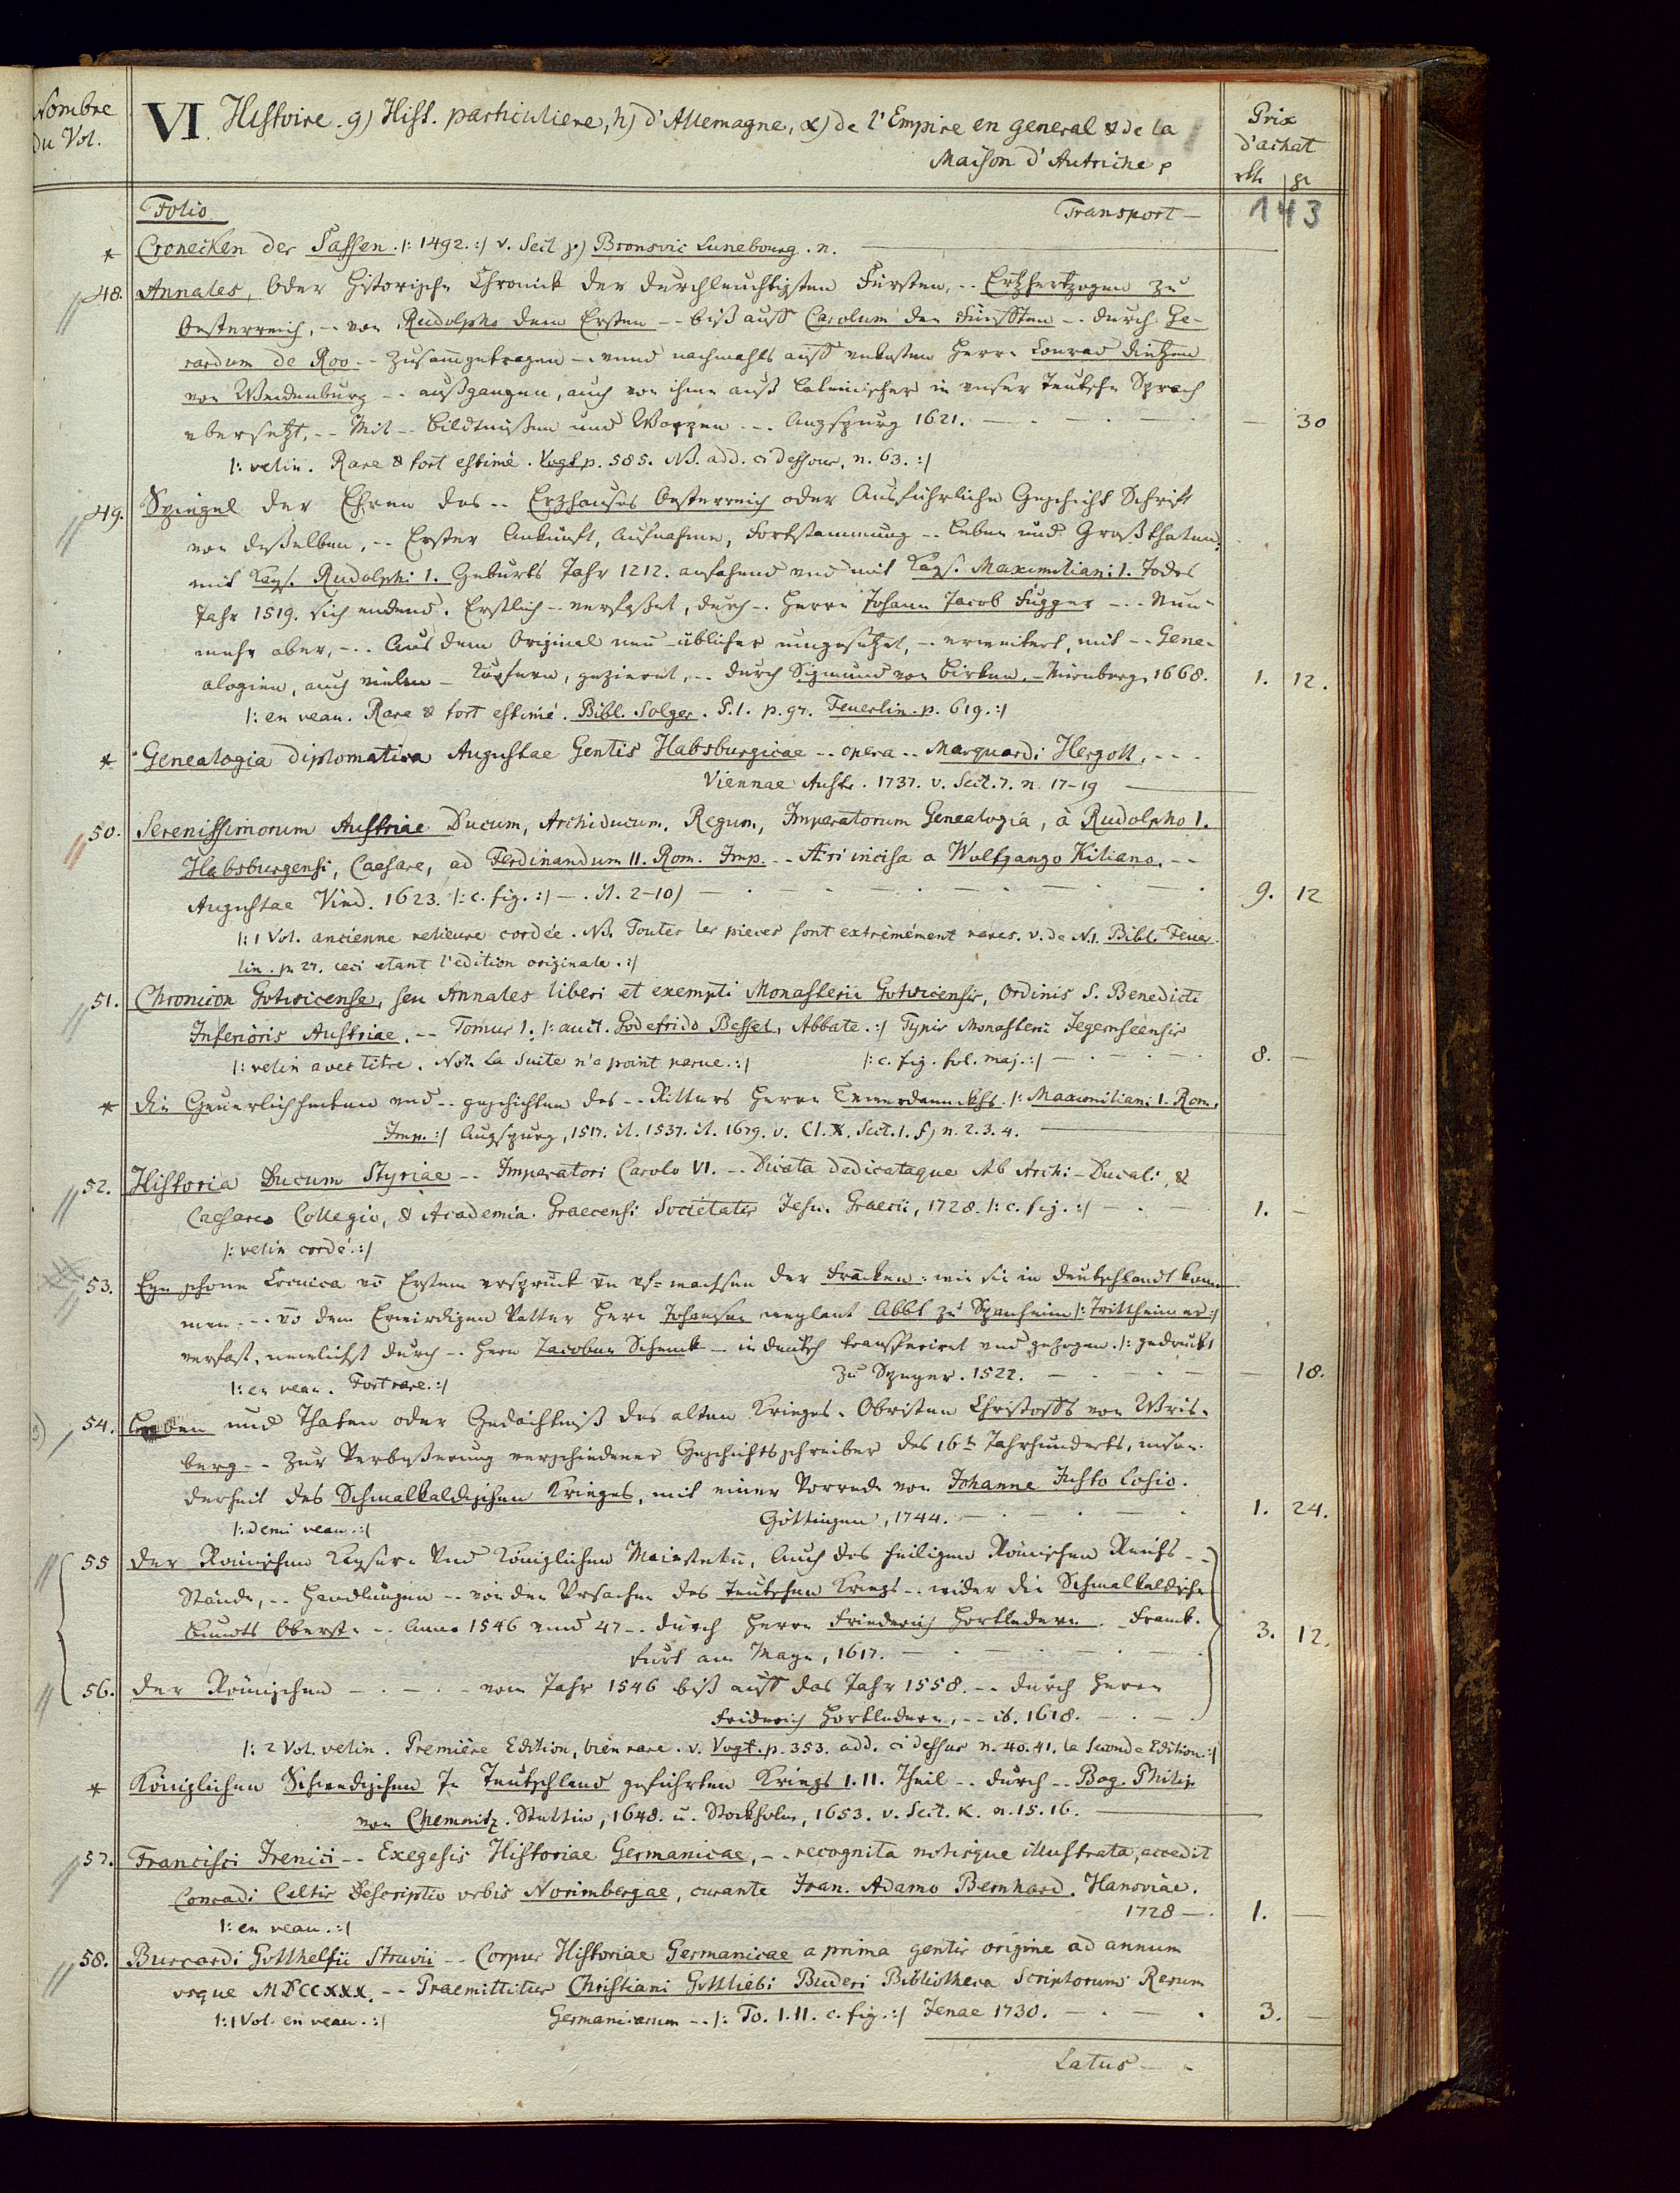 Nombre
du Vol.
VI. Histoire. g) Hist. particuliere, h) d'Allemagne, α) de l'Empire en general & de la
Maison d'Autriche
Prix
d'achat
rth gr
Folio Transport — 143
* Cronecken der Sassen. |: 1492. :| v. Sect γ) Bronsvic Lunebourg. n.
48. Annales, Oder Historische Chronick der durchleuchtigsten Fürsten, -- Ertzhertzogen zu
Oesterreich, -- von Rudolpho dem Ersten -- biß auff Carolum den Fünfften -- durch Ge-
rardum de Roo -- zusamgetragen -- vnnd nachmahls auff Herrn Conrad Dietzen
von Weidenburg -- außgangen, auch von ihme auß Lateinischer in vnser Teutsche Sprach
vbersetzt, -- Mit -- Bildtnißen und Wappen -- Augspurg 1621. — 30
|: velin. Rare & fort estimé. Vogt p. 585. NB. add. ci dessous, n. 63. :|
49. Spiegel der Ehren des -- Erzhauses Oesterreich oder Ausführliche Geschicht Schrift
von deßelben, -- Erster Ankunft, Aufnahme, Fortstammung -- Leben und Großthaten,
mit Kays. Rudolphi 1. Geburts Jahr 1212. anfahend und mit Kays. Maximiliani 1. Todes
Jahr 1519. sich endend. Erstlich -- verfaßet, durch -- Herrn Johann Jacob Fugger -- Nun-
mehr aber, -- Aus dem Original neu-üblicher umgesetzet, -- erweitert, mit -- Gene-
alogien, auch vielen - Kupfern, gezieret, -- durch Sigmund von Birken, - Nürnberg, 1668. 1. 12.
|: en veau. Rare & fort estimé. Bibl. Solger. P. 1. p. 97. Feuerlin. p. 619. :|
* Genealogia diplomatica Augustae Gentis Habsburgicae -- opera -- Marquardi Hergott, ---
Viennae Austr. 1737. v. Sect. 7. n. 17-19
50. Serenissimorum Austriae Ducum, Archiducum, Regum, Imperatorum Genealogia, à Rudolpho 1.
Habsburgensi, Caesare, ad Ferdinandum II. Rom. Imp. -- Aeri incisa a Wolfgango Kiliano. --
Augustae Vind. 1623. |: c. fig. :| — . it. 2-10) 9. 12
|: 1 Vol. ancienne relieure cordée. NB. Toutes les pieces sont extrèmément rares. v. de N. 1. Bibl. Feuer-
lin. p. 27. ceci etant l'edition originale. :|
51. Chronicon Gotwicense, seu Annales liberi et exempti Monasterii Gotwicensis, Ordinis S. Benedicti
Inferioris Austriae, -- Tomus 1. |: auct. Godefrido Bessel, Abbate. :| Typis Monasterii Tegernseensis
|: velin avec titre. Not. La Suite n'a point parue. :| |: c. fig. fol. maj. :| 8. —
* Die Geuerlichheiten vnd -- geschichten des -- Ritters Herrn Tewrdannckhs. |: Maximiliani 1. Rom.
Imp. :| Augspurg, 1517. it. 1537. it. 1679. v. Cl. X. Sect. 1. f) n. 2. 3. 4.
52. Historia Ducum Styriae -- Imperatori Carolo VI. -- Dicata dedicataque Ab Archi-Ducali, &
Caesareo Collegio, & Academia Graecensi Societatis Jesu. Graecii, 1728. |: c. fig. :| 1. —
|: velin cordé. :|
53. Eyn schone Cronica vō Erstem vrspruck vn vf-wachsen der Francken: wie sie in Deutschlandt kom-
men -- vō dem Erwirdigen Vatter Hern Johansen weylant Abbt zů Spanheim |: Trittheimer :|
verfast, newlichst durch -- Hern Jacoben Schenck -- in deutsch transferiret vnd gezogen. |: gedruckt
|: en veau. Fort rare. :| Zů Speyer. 1522. — 18.
54. Leben und Thaten oder Gedächtniß des alten Krieges-Obristen Christoffs von Wris-
berg -- zur Verbeßerung verschiedener Geschichtschreiber des 16n Jahrhunderts, inson-
derheit des Schmalkaldischen Krieges, mit einer Vorrede von Johanne Justo Losio.
|: demi veau. :| Göttingen, 1744. 1. 24.
55 Der Römischen Keyser- Vnd Königlichen Maiestetn, Auch des heiligen Römischen Reichs --
Stände, -- Handlungen -- von den Vrsachen des Teutschen Kriegs -- wider die Schmalkaldische
Bundts Oberste -- Anno 1546 vnnd 47 -- durch Herrn Friederich Hortledern. Franck-
furt am Mayn, 1617. 3. 12.
56. Der Römischen — vom Jahr 1546 biß auff das Jahr 1558. -- durch Herrn
Friderich Hortledern, -- ib. 1618.
|: 2 Vol. velin. Premiére Edition, bien rare. v. Vogt. p. 353. add. ci dessus n. 40. 41. la Seconde Edition :|
* Königlichen Schwedischen In Teutschland geführten Kriegs 1. 11. Theil -- durch -- Bog. Philip
von Chemnitz. Stettin, 1648. u. Stockholm, 1653. v. Sect. K. n. 15. 16.
57. Francisci Irenici -- Exegesis Historiae Germanicae, -- recognita notisque illustrata, accedit
Conradi Celtis Descriptio vrbis Norimbergae, curante Jran. Adamo Bernhard. Hanoviae.
|: en veau. :| 1728 — 1. —
58. Burcardi Gotthelfii Struvii -- Corpus Historiae Germanicae a prima gentis origine ad annum
vsque MDCCXXX. -- Praemittitur Christiani Gottliebi Buderi Bibliotheca Scriptorum Rerum
|: 1 Vol. en veau. :| Germanicarum -- |: To. 1. 11. c. fig. :| Jenae 1730. 3. —
Latus —